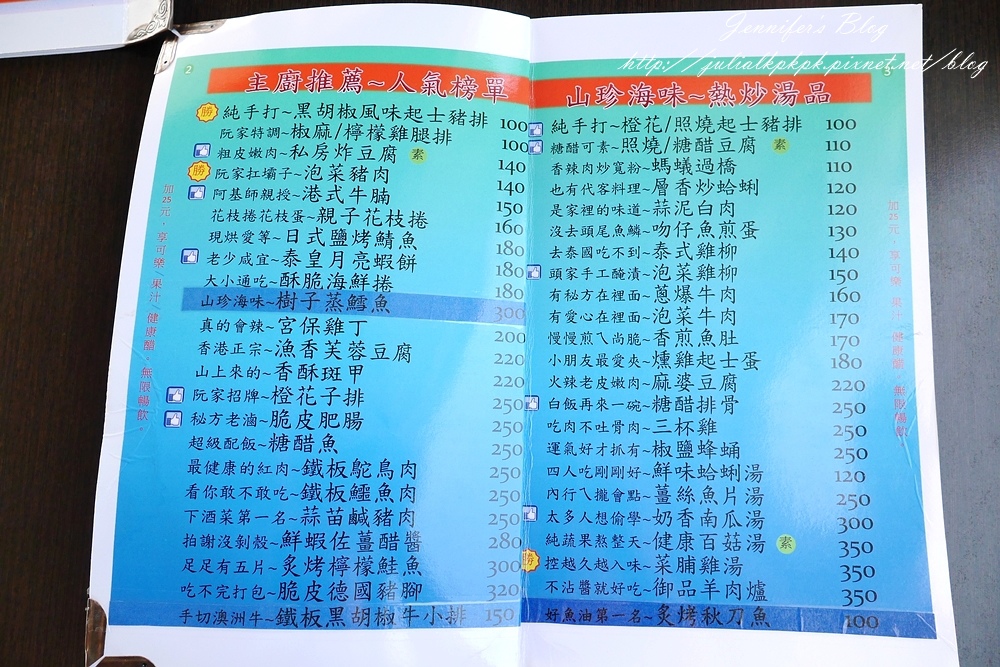 Jennifer's Blog
http://julialkpkpk.pixnet.net/blog
2
主廚推薦~人氣榜單
勝 純手打~黑胡椒風味起士豬排 100
阮家特調~椒麻/檸檬雞腿排 100
粗皮嫩肉~私房炸豆腐 素 140
勝 阮家扛壩子~泡菜豬肉 140
阿基師親授~港式牛腩 150
花枝捲花枝蛋~親子花枝捲 160
現烘愛等~日式鹽烤鯖魚 180
老少咸宜~泰皇月亮蝦餅 180
大小通吃~酥脆海鮮捲 180
山珍海味~樹子蒸鱈魚 300
真的會辣~宮保雞丁 200
香港正宗~漁香芙蓉豆腐 220
山上來的~香酥斑甲 220
阮家招牌~橙花子排 250
秘方老滷~脆皮肥腸 250
超級配飯~糖醋魚 250
最健康的紅肉~鐵板鴕鳥肉 250
看你敢不敢吃~鐵板鱷魚肉 250
下酒菜第一名~蒜苗鹹豬肉 250
拍謝沒剝殼~鮮蝦佐薑醋醬 280
足足有五片~炙烤檸檬鮭魚 300
吃不完打包~脆皮德國豬腳 320
手切澳洲牛~鐵板黑胡椒牛小排 150
加25元，享可樂/果汁/健康醋，無限暢飲。
3
山珍海味~熱炒湯品
純手打~橙花/照燒起士豬排 100
糖醋可素~照燒/糖醋豆腐 素 110
香辣肉炒寬粉~螞蟻過橋 110
也有代客料理~層香炒蛤蜊 120
是家裡的味道~蒜泥白肉 120
沒去頭尾魚鱗~吻仔魚煎蛋 130
去泰國吃不到~泰式雞柳 140
頭家手工醃漬~泡菜雞柳 150
有秘方在裡面~蔥爆牛肉 160
有愛心在裡面~泡菜牛肉 170
慢慢煎ㄟ尚脆~香煎魚肚 170
小朋友最愛夾~燻雞起士蛋 180
火辣老皮嫩肉~麻婆豆腐 220
白飯再來一碗~糖醋排骨 250
吃肉不吐骨肉~三杯雞 250
運氣好才抓有~椒鹽蜂蛹 250
四人吃剛剛好~鮮味蛤蜊湯 120
內行ㄟ攏會點~薑絲魚片湯 250
太多人想偷學~奶香南瓜湯 300
純蔬果熬整天~健康百菇湯 素 350
勝 控越久越入味~菜脯雞湯 350
不沾醬就好吃~御品羊肉爐 350
好魚油第一名~炙烤秋刀魚 100
加25元，享可樂 果汁 健康醋，無限暢飲